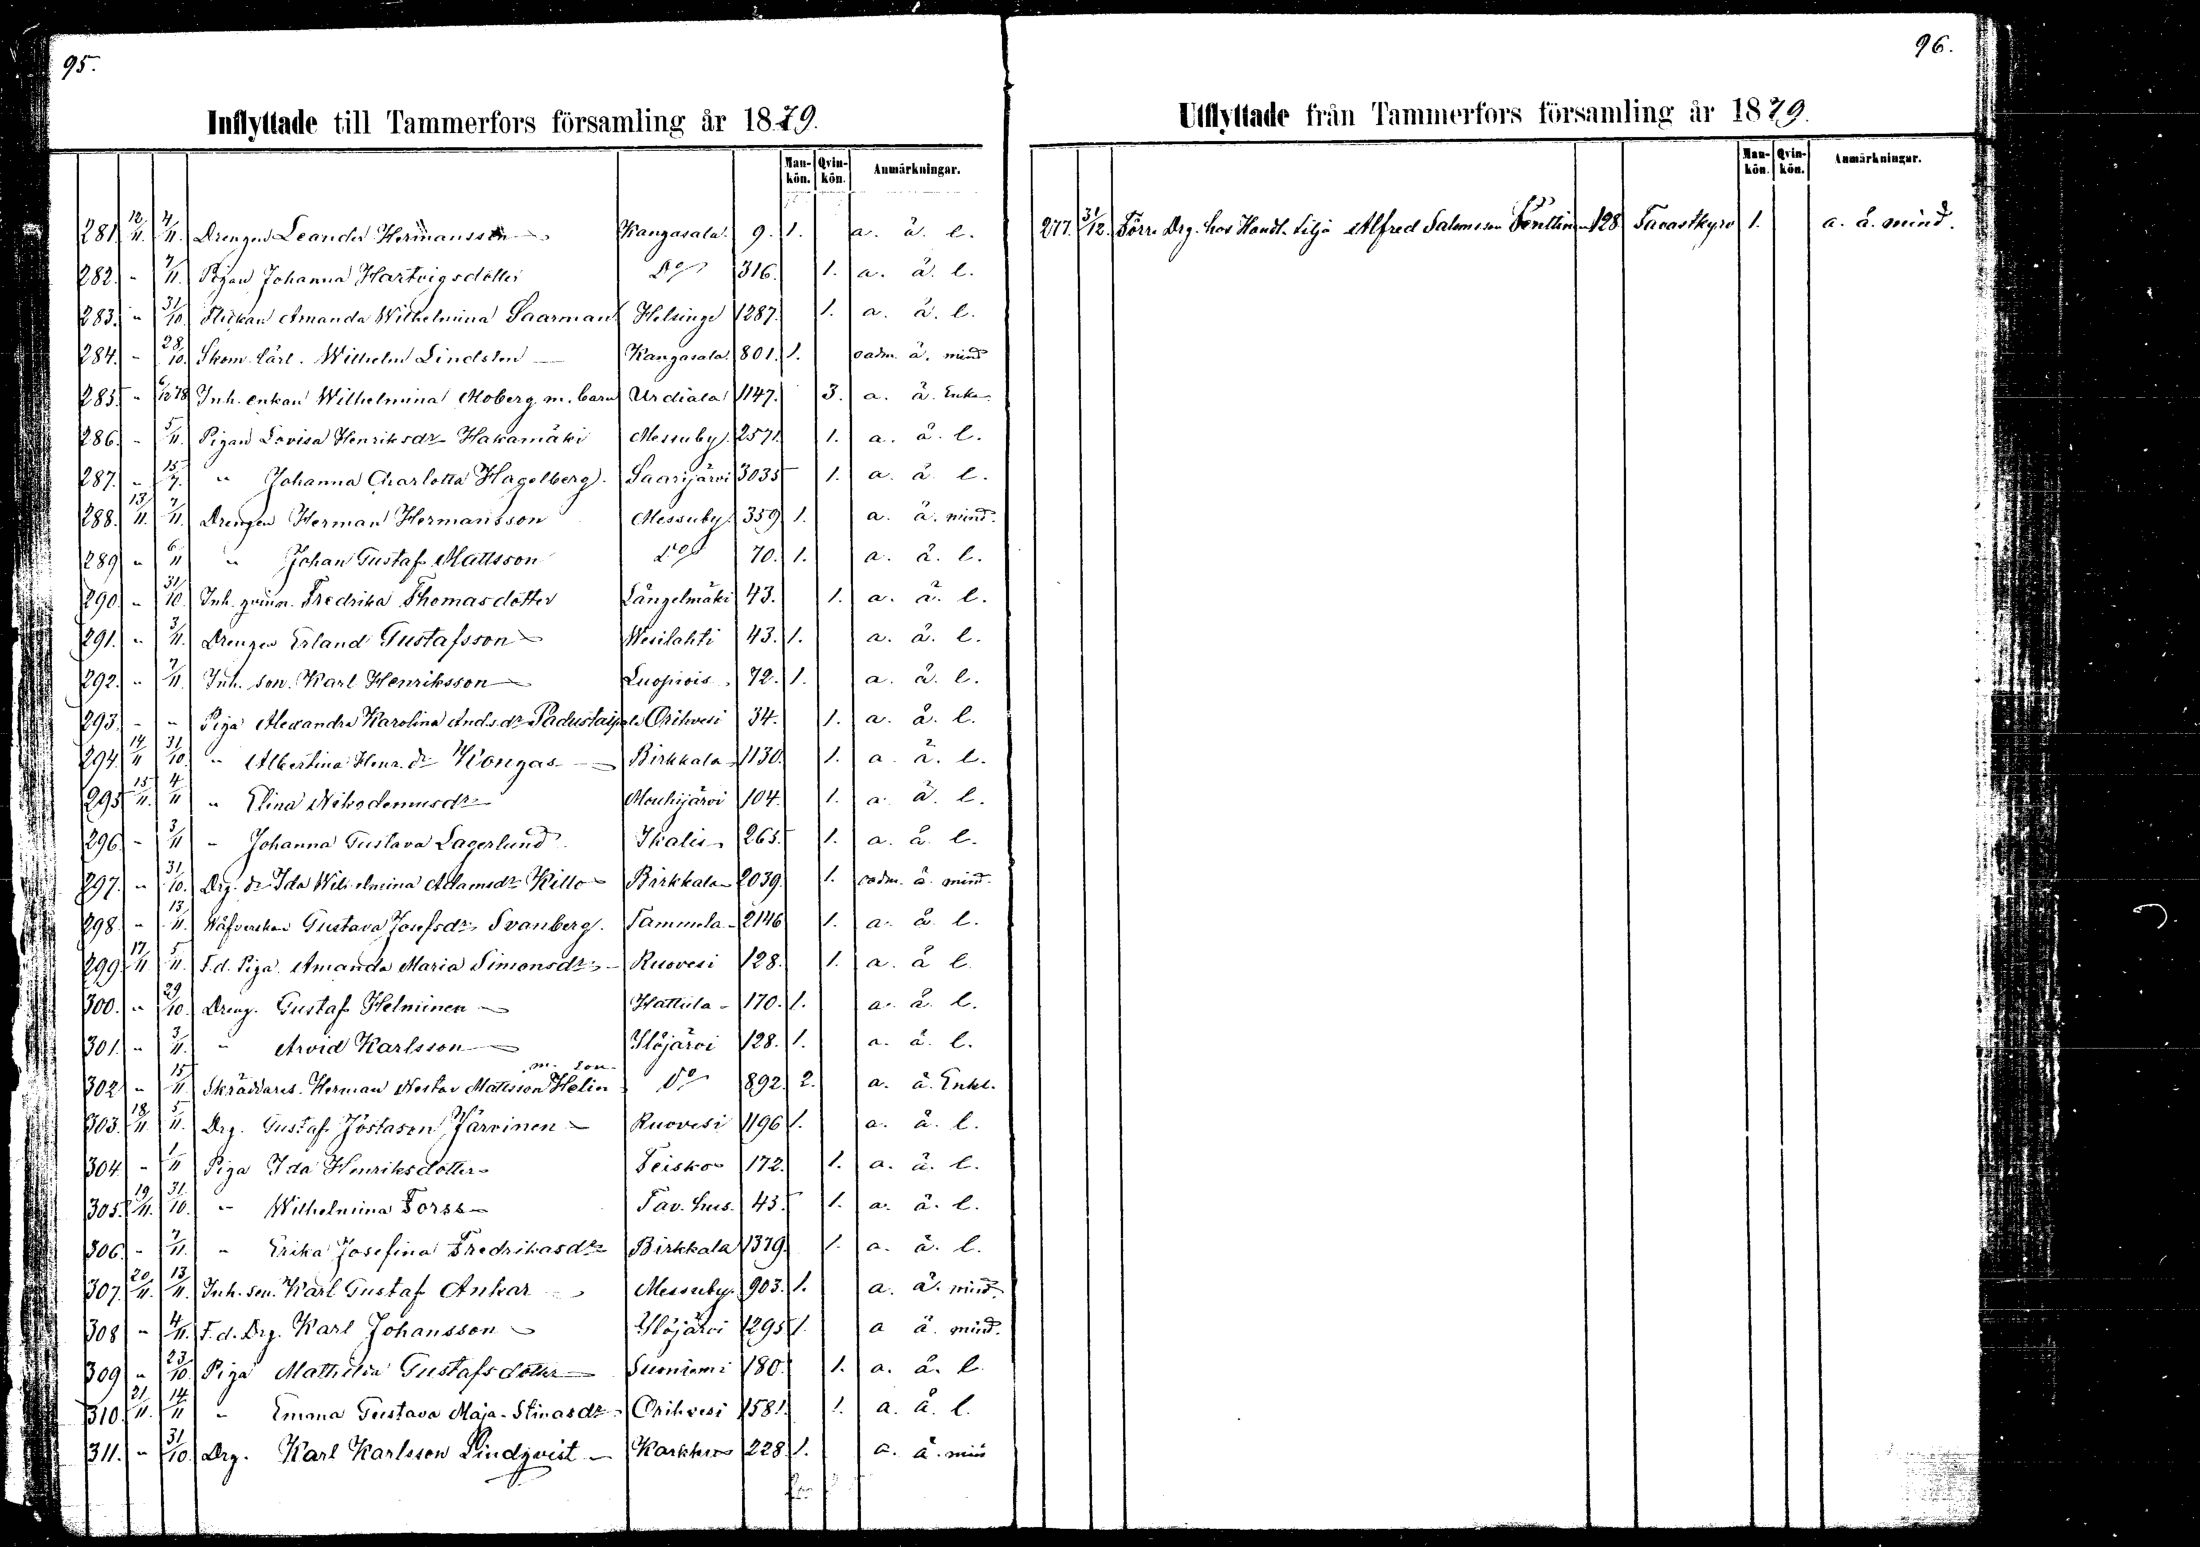 95.
Inflyttade till Tammerfors församling år 1879.
Man-kön. Qvin-kön. Anmärkningar.
281. 12/11. 4/11. Drengen Leander Hermansson Kangasala 9. 1. a. ä. l.
282. - 7/11. Pigan Johanna Hartvigsdotter Do 316. 1. a. ä. l.
283. - 31/10. Flickan Amanda Wilhelmina Saarman Helsinge 1287. 1. a. ä. l.
284. - 28/10. Skom. lärl. Wilhelm Lindsten Kangasala 801. 1. oadm. ä. mind
285. - 6/12 78 Inh. enkan Wilhelmina Moberg m. barn Urdiala 1147. 3. a. ä. Enka.
286. - 5/11. Pigan Lovisa Henriksdr Hakamäki Messuby. 2571. 1. a. ä. l.
287. - 15/7. " Johanna Charlotta Hagelberg. Saarijärvi 3035 1. a. ä. l.
288. 13/11. 7/11. Drengen Herman Hermansson Messuby. 359 1. a. ä. mind.
289 " 6/11 " Johan Gustaf Mattsson Do 70. 1. a. ä. l.
290. - 31/10. Inh. qvinn. Fredrika Thomasdotter Längelmäki 43. 1. a. ä. l.
291. " 3/11. Drengen Erland Gustafsson Wesilahti 43. 1. a. ä. l.
292. - 7/11. Inh. son. Karl Henriksson Luopiois 72. 1. a. ä. l.
293. - - Piga Alexandra Karolina Ands.dr Padustaipale Orihvesi 34. 1. a. ä. l.
294. 14/11 31/10. " Albertina Henr. dr Kongas Birkkala 1130. 1. a. ä. l.
295 15/11. 4/11 " Elina Nikodemusdr Mouhijärvi 104. 1. a. ä. l.
296. - 3/11 - Johanna Gustava Lagerlund Ikalis 265. 1. a. ä. l.
297. " 31/10. Drg. dr Ida Wilhelmina Adamsdr Killo Birkkala 2039. 1. oadm. ä. mind.
298. " 13/11. Wäfverskan Gustava Josefsdr Svanberg. Tammela 2146 1. a. ä. l.
299. 17/11 5/11. F.d. Piga. Amanda Maria Simonsdr Ruovesi 128. 1. a. ä l.
300. " 29/10. Dreng. Gustaf Helminen Hattula 170. 1. a. ä. l.
301. - 3/11. " Arvid Karlsson Ylöjärvi 128. 1. a. ä. l.
m. son
302 - 15/11 Skräddares. Herman Nestor Mattsson Helin Do 892. 2. a. ä. Enkl.
303. 18/11 5/11. Drg. Gustaf Jöstason Järvinen Ruovesi 1196 1. a. ä. l.
304 - 1/11 Piga Ida Henriksdotter Teisko 172. 1. a. ä. l.
305. 19/11. 31/10. " Wilhelmina Forss Tav. hus. 43. 1. a. ä. l.
306. - 7/11. " Erika Josefina Fredrikasdr Birkkala 1379. 1. a. ä. l.
307. 20/11. 13/11. Inh. son. Karl Gustaf Ankar Messuby. 903. 1. a. ä. mind.
308 - 4/11. F.d. Drg. Karl Johansson Ylöjärvi 1295 1. a ä. mind.
309 " 23/10 Piga Mathilda Gustafsdotter Suoniemi 180. 1. a. ä. l
310. 21/11. 14/11 " Emma Gustava Maja-Stinasdr Orihvesi 1581. 1. a. ä. l.
311. - 31/10. Drg. Karl Karlsson Lindqvist Karkku 228. 1. a. ä. min
96.
Utflyttade från Tammerfors församling år 1879.
Man-kön. Qvin-kön. Anmärkningar.
277. 31/12. Förre Drg. hos Handl. Liljä Alfred Salomsson Penttinen 128 Tavastkyro 1. a. ä. mind.